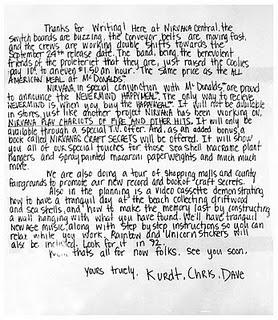 Thanks for writing! Here at NIRVANA central, the
switch boards are buzzing, the conveyor belts are moving fast,
and the crews are working double shifts towards the
September 24th release date. The band, being the benevolent
friends of the proletariat that they are, just raised the Coolies
pay 10¢ to an even $1.50 an hour. The same price as the ALL
AMERICAN MEAL at McDonalds
NIRVANA in special conjunction with McDonalds are proud
to announce the NEVERMIND HAPPYMEAL. The only way to recieve
NEVERMIND is when you buy the HAPPYMEAL. It will not be available
in stores, just like another project NIRVANA has been working on,
NIRVANA PLAY CHARIOTS OF FIRE AND OTHER HITS. It will only be
available through a special T.V. offer. And, as an added bonus, a
book called NIRVANAS CRAFT SECRETS will be offered. It will show
you all of our special touches for those sea shell macramé plant
hangers and spraypainted macaroni paperweights and much much
more.
We are also doing a tour of shopping malls and county
fairgrounds to promote our new record and book of craft secrets.
Also in the planning is a video cassette demonstrating
how to have a tranquil day at the beach collecting driftwood
and sea shells, and how to make the memory last by constructing
a wall hanging with what you have found. We'll have tranquil
new age music, along with step by step instructions so you can
relax while you work. Rainbow and Unicorn stickers will
also be included. Look for it in '92.
thats all for now folks. See you soon.
yours truely, Kurdt, Chris, Dave